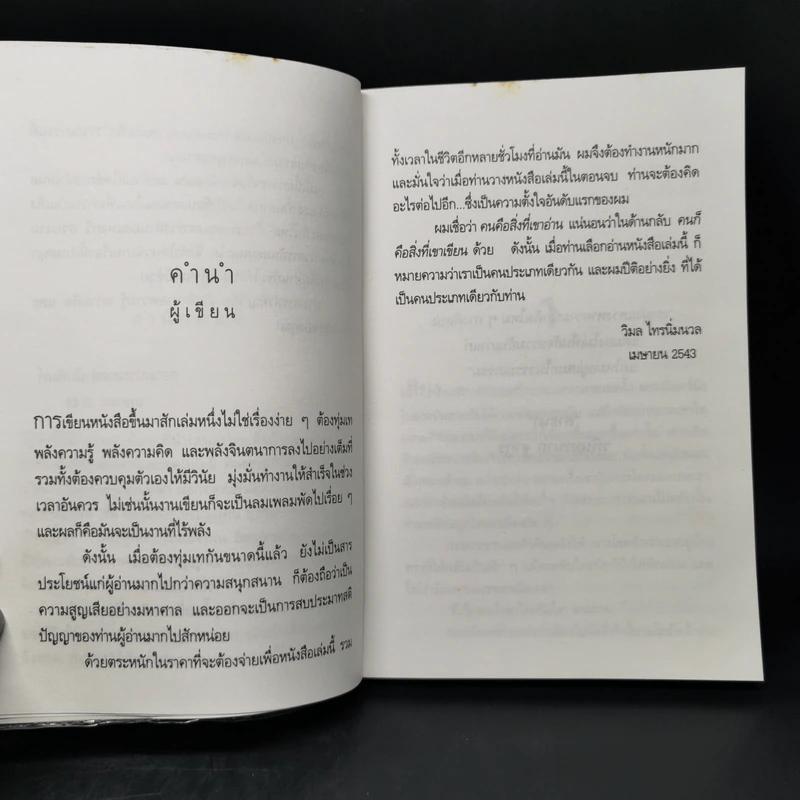 คำนำ
ผู้เขียน
การเขียนหนังสือขึ้นมาสักเล่มหนึ่งไม่ใช่เรื่องง่าย ๆ ต้องทุ่มเท
พลังความรู้ พลังความคิด และพลังจินตนาการลงไปอย่างเต็มที่
รวมทั้งต้องควบคุมตัวเองให้มีวินัย มุ่งมั่นทำงานให้สำเร็จในช่วง
เวลาอันควร ไม่เช่นนั้นงานเขียนก็จะเป็นลมเพลมพัดไปเรื่อย ๆ
และผลก็คือมันจะเป็นงานที่ไร้พลัง
ดังนั้น เมื่อต้องทุ่มเทกันขนาดนี้แล้ว ยังไม่เป็นสาร
ประโยชน์แก่ผู้อ่านมากไปกว่าความสนุกสนาน ก็ต้องถือว่าเป็น
ความสูญเสียอย่างมหาศาล และออกจะเป็นการสบประมาทสติ
ปัญญาของท่านผู้อ่านมากไปสักหน่อย
ด้วยตระหนักในราคาที่จะต้องจ่ายเพื่อหนังสือเล่มนี้ รวม
ทั้งเวลาในชีวิตอีกหลายชั่วโมงที่อ่านมัน ผมจึงต้องทำงานหนักมาก
และมั่นใจว่าเมื่อท่านวางหนังสือเล่มนี้ในตอนจบ ท่านจะต้องคิด
อะไรต่อไปอีก...ซึ่งเป็นความตั้งใจอันดับแรกของผม
ผมเชื่อว่า คนคือสิ่งที่เขาอ่าน แน่นอนว่าในด้านกลับ คนก็
คือสิ่งที่เขาเขียน ด้วย ดังนั้น เมื่อท่านเลือกอ่านหนังสือเล่มนี้ ก็
หมายความว่าเราเป็นคนประเภทเดียวกัน และผมปีติอย่างยิ่ง ที่ได้
เป็นคนประเภทเดียวกับท่าน
วิมล ไทรนิ่มนวล
เมษายน 2543